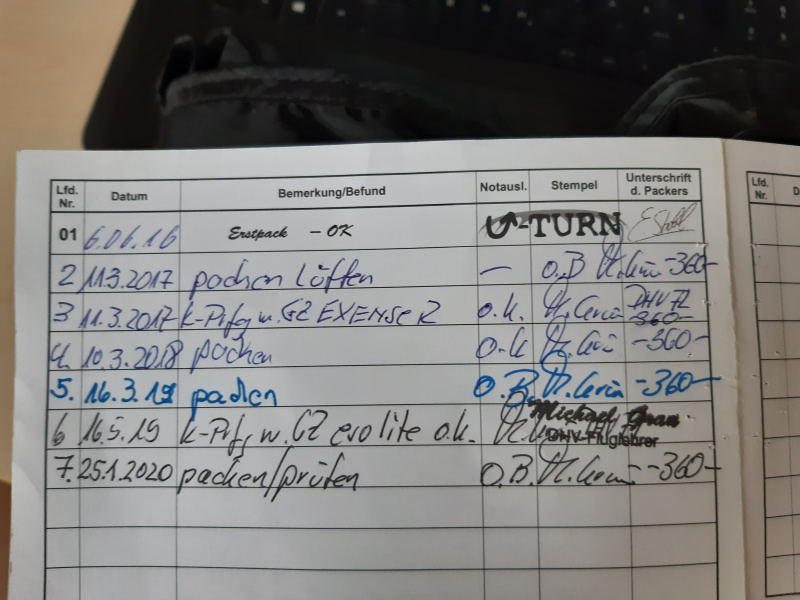 Lfd. Nr. Datum Bemerkung/Befund Notausl. Stempel Unterschrift d. Packers
01 6.06.16 Erstpack – OK U-TURN
2 11.3.2017 packen Lüften — o.B -360-
3 11.3.2017 K-Prfg w. GZ EXENSE R o.k. DHV FL 360-
4. 10.3.2018 packen o-k -360-
5. 16.3.19 packen o.B. -360-
6 16.5.19 K-Prfg w. GZ evo lite o.k. Michael DHV-Fluglehrer
7. 25.1.2020 packen/prüfen o.B. -360-
Lfd. Nr.